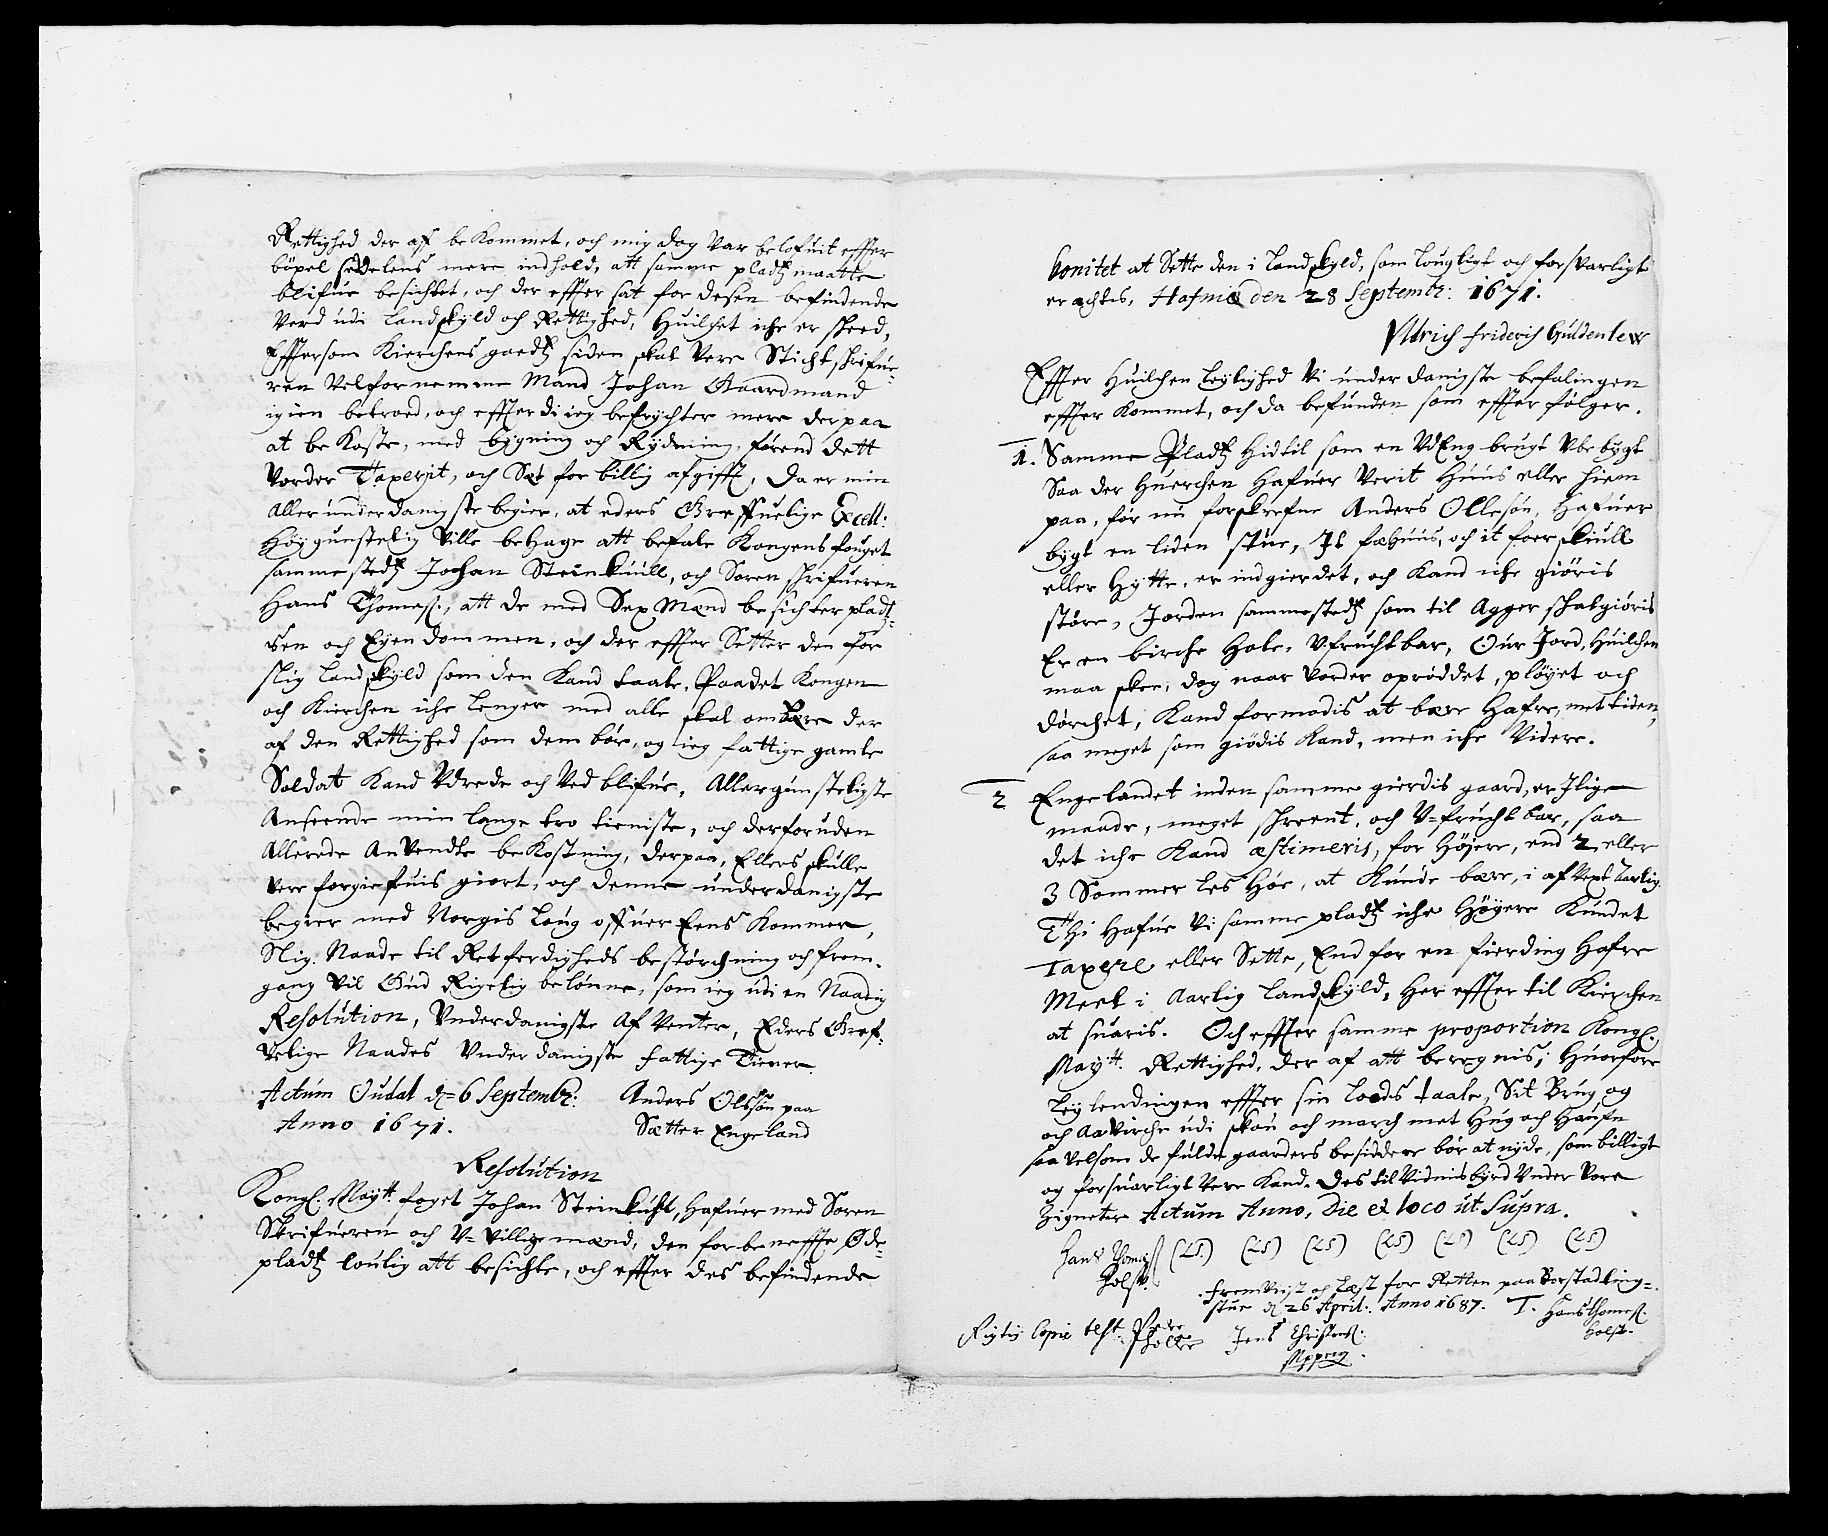 Rettighed der af bekommet, och mig dog var belofuit effter
böxel sedelens mere indhold, att samme pladtz maatte
blifue besichtet, och der effter sat for desen befindende
Verd udi Landskyld och Rettighed, Huilchet iche er skeed,
Efftersom Kierchens goedtz siden skal Vere Stichtskrifue-
ren Velfornemme Mand Johan Gaardmand
igien betroed, och effterdi ieg befrychter mere derpaa
at bekoste, med bygning och Rydning, førend dett
Vorder Taxerit, och Sat for billig afgifft, Da er min
Allerunderdanigste begier, at eders Greffuelige Excell:
Høygunstelig Ville behage att befale Kongens fouget
sammestedtz Johan Steinkuull, och Sorenskrifueren
Hans Thomess:, att de med Sex Mænd besichter pladt-
sen och Eyendommen, och der effter Setter den for
slig Landskyld som den Kand taale, Paadet Kongen
och Kierchen iche lenger med alle skal ombære der
af den Rettighed som dem bör, og ieg fattige gamle
Soldat Kand Udrede och Ved blifue, Allergunsteligste
Anseende min lange tro tieniste, och derforuden
Allerede Anvendte bekostning, derpaa, Ellers skulle
vere forgiefuis giort, och denne underdanigste
begier med Norgis Loug offuer Eens Kommer,
Slig Naade til Retferdigheds bestörchning och frem-
gang Vil Gud Rigelig belønne, som ieg udi en Naadig
Resolution, Underdanigste Af Venter, Eders Gref-
velige Naades Underdanigste fattige Tiener
Actum Oudal d= 6 Septembr: Anders Olssøn paa
Anno 1671. Sætter Engeland
Resolution
Kongl: Mayts: foget Johan Steinkuhl, Hafuer med Soren
Skrifueren och U=villige mænd, den forbeneffte Øde-
pladtz loulig att besichte, och effter des befindende
bonitet at Sette den i Landskyld, som lougligt och forsvarligt
erachtes, Hafniæ den 28 Septembr: 1671.
Uldrich friderich Güldenlew
Effter Huilchen leylighed Vi underdanigste befalingen
effter Kommet, och da befunden som effter følger.
1. Samme Pladtz hidtil som en UdEng brugt Ubebygt
Saa der Huerchen Hafuer Verit Huus eller hiem
paa, før nu forskrefne Anders Ollesön, Hafuer
bygt en liden stue, It fæhuus, och it foerskiull
eller Hytte, er indgierdet, och Kand iche giöris
störe, Jorden sammestedtz som til Agger skal giöris
Er en birche Hole, Ufruchtbar, Our Jord, Huilchen
maa skee, dog naar Vorder oprøddet, pløyet och
dørchet, Kand formodis at bære Hafre, met tiden,
saa meget som giødis Kand, men iche Videre.
2 Engelandet inden samme gierdis gaard, er Ilige
maade, meget skreent, och U=fruchtbar, saa
det iche Kand æstimeris, for Höyere, end 2, eller
3 Sommer les Høe, at Kunde bære, i afVext Aarlig.
Thi Hafue Vi samme pladtz iche Høyere Kundet
Taxere eller Sette, End for en fierding Hafre
Meel i Aarlig Landskyld, Her effter til Kierchen
at suaris. Och effter samme proportion Kongl:
Mayts: Rettighed, der af att beregnis; Huorfore
Leylendingen effter sin Lods taale, Sit Brug og
och Aavirche udi skou och march met Hug och Haufn
saavelsom de fulde gaarders besiddere bør at nyde, som billigt
og forsuarligt Vere Kand. Des til Vidnisbyrd Under Vore
Zigneter Actum Anno, Die et loco ut Supra.
Hans Thomess (LS.) (LS) (LS) (LS) (LS) (LS) (LS)
Holst.
fremViist och Læst for Retten paa Borstad ting=
stue d 26 April: Anno 1687. T. Hans Thomess:
Holst.
Rigtig Copie test. Jens Christenss: